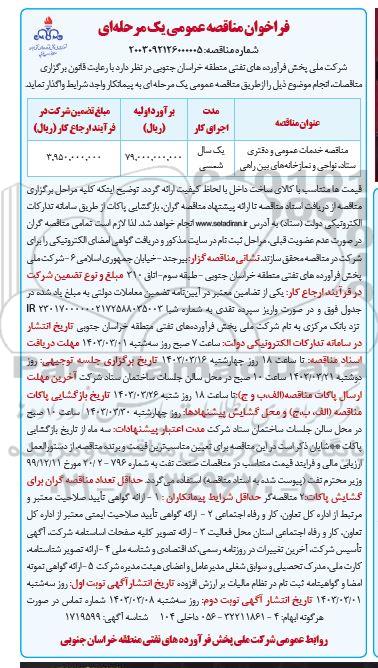 فراخوان مناقصه عمومی یک مرحله‌ای
شماره مناقصه: ۲۰۰۳۰۹۲۱۲۶۰۰۰۰۰۵
شرکت ملی پخش فرآورده های نفتی منطقه خراسان جنوبی در نظر دارد با رعایت قانون برگزاری
مناقصات، انجام موضوع ذیل را از طریق مناقصه عمومی یک مرحله ای به پیمانکار واجد شرایط واگذار نماید.
عنوان مناقصه
مدت اجرای کار
برآورد اولیه (ریال)
مبلغ تضمین شرکت در فرآیند ارجاع کار (ریال)
مناقصه خدمات عمومی و دفتری ستاد، نواحی و نمازخانه‌های بین راهی
یک سال شمسی
۷۹,۰۰۰,۰۰۰,۰۰۰
۳,۹۵۰,۰۰۰,۰۰۰
قیمت ها متناسب با کالای ساخت داخل با لحاظ کیفیت ارائه گردد. توضیح اینکه کلیه مراحل برگزاری
مناقصه از دریافت اسناد مناقصه تا ارائه پیشنهاد مناقصه گران، بازگشایی پاکات از طریق سامانه تدارکات
الکترونیکی دولت (ستاد) به آدرس www.setadiran.ir انجام خواهد شد. لذا لازم است تمامی مناقصه گران
در صورت عدم عضویت قبلی، مراحل ثبت نام در سایت مذکور و دریافت گواهی امضای الکترونیکی را برای
شرکت در مناقصه محقق سازند. نشانی مناقصه گزار: بیرجند-خیابان جمهوری اسلامی ۶-شرکت ملی
پخش فرآورده های نفتی منطقه خراسان جنوبی -طبقه سوم-اتاق ۳۱۰ مبلغ و نوع تضمین شرکت
در فرآیند ارجاع کار: یکی از تضامین معتبر در آیین‌نامه تضمین معاملات دولتی به مبلغ یاد شده در
جدول فوق و در صورت واریز سپرده نقدی به شماره شبا IR ۲۳۰۱۷۰۰۰۰۰۰۲۱۷۲۵۸۸۰۲۵۰۰۳
نزد بانک مرکزی به نام شرکت ملی پخش فرآورده‌های نفتی منطقه خراسان جنوبی تاریخ انتشار
در سامانه تدارکات الکترونیکی دولت: ساعت ۷ صبح روز سه‌شنبه ۱۴۰۳/۰۳/۰۱ مهلت دریافت
اسناد مناقصه: تا ساعت ۱۸ روز چهارشنبه ۱۴۰۳/۰۳/۱۶ تاریخ برگزاری جلسه توجیهی: روز
دوشنبه ۱۴۰۳/۰۳/۲۱ ساعت ۱۰ صبح در محل سالن جلسات ساختمان ستاد شرکت آخرین مهلت
ارسال پاکات مناقصه (الف، ب و ج): تا ساعت ۱۸ روز شنبه ۱۴۰۳/۰۳/۲۶ تاریخ بازگشایی پاکات
مناقصه (الف، ب، ج) و محل گشایش پیشنهادها: روز چهارشنبه ۱۴۰۳/۰۳/۳۰ ساعت ۱۰ صبح
در محل سالن جلسات ساختمان ستاد شرکت مدت اعتبار پیشنهادات: سه ماه از تاریخ بازگشایی
پاکات **شایان ذکر است در این مناقصه برای تعیین مناسب‌ترین قیمت و برنده مناقصه، از دستورالعمل
ارزیابی مالی و فرایند قیمت متناسب در مناقصات صنعت نفت به شماره ۷۹۶ - ۲۰/۲ مورخ ۹۹/۱۲/۱۱
وزیر محترم نفت (پیوست شده به اسناد مناقصه) استفاده می‌گردد. حداقل تعداد مناقصه گران برای
گشایش پاکات: ۲ مناقصه گر حداقل شرایط پیمانکاران: ۱ - ارائه گواهی تأیید صلاحیت معتبر و
مرتبط از اداره کل تعاون، کار و رفاه اجتماعی ۲ - ارائه گواهی تأیید صلاحیت ایمنی معتبر از اداره کل
تعاون، کار و رفاه اجتماعی استان محل فعالیت ۳ - ارائه تصویر کلیه صفحات اساسنامه شرکت، آگهی
تأسیس شرکت، آخرین تغییرات در روزنامه رسمی، کد اقتصادی و شناسه ملی ۴ -ارائه تصویر شناسنامه،
کارت ملی، مدرک تحصیلی و سوابق شغلی مدیرعامل و اعضای هیئت مدیره شرکت ۵ -ارائه گواهی نمونه
امضا و گواهینامه ثبت نام در نظام مالیات بر ارزش افزوده تاریخ انتشار آگهی نوبت اول: روز سه‌شنبه
۱۴۰۳/۰۳/۰۱ تاریخ انتشار آگهی نوبت دوم: روز سه‌شنبه ۱۴۰۳/۰۳/۰۸ شماره تماس در صورت
هرگونه ابهام: ۴ - ۳۲۲۱۱۸۶۱ - ۰۵۶ داخلی ۱۰۴ شناسه آگهی: ۱۷۱۹۵۹۹
روابط عمومی شرکت ملی پخش فرآورده های نفتی منطقه خراسان جنوبی